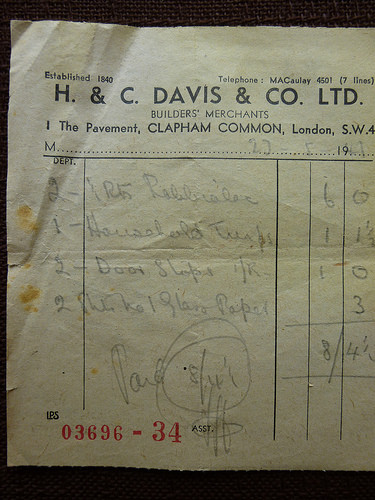 Established 1840 Telephone: MACaulay 4501 (7 lines)
H. & C. DAVIS & CO. LTD.
BUILDERS' MERCHANTS
1 The Pavement, CLAPHAM COMMON, London, S.W.4
M 23 - 5 - 19
DEPT.
2 - 6 0
1 - Household Turps 1 1½
2 - Door Stops 1 0
2 No 1 Glass Paper 3
8/4½
Paid 8/4½
LBS
03696 - 34 ASST.